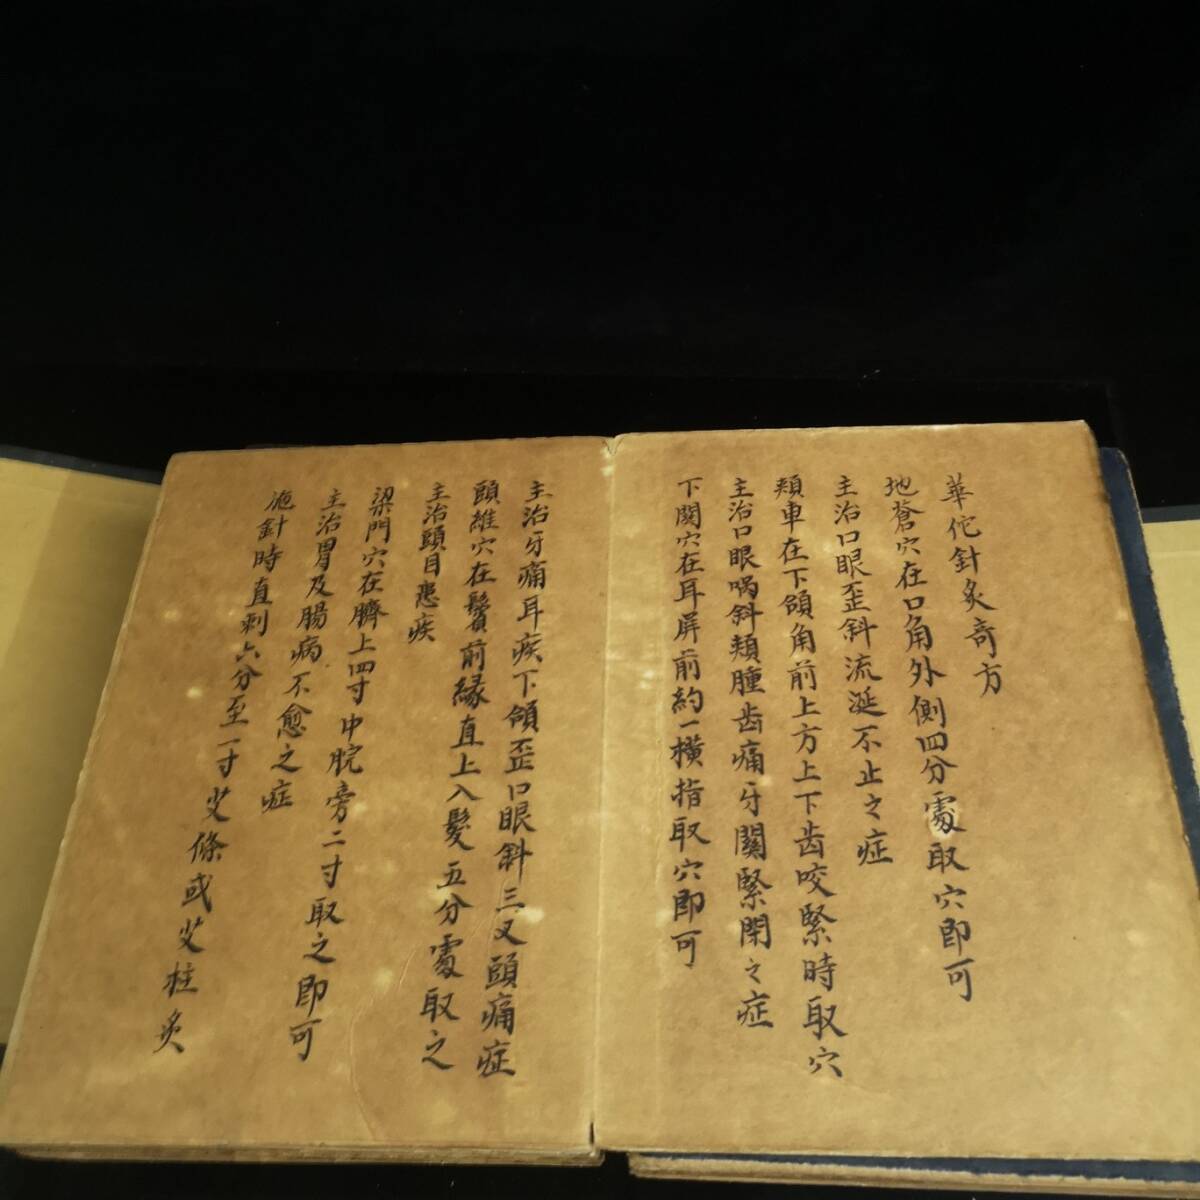 華佗針炙奇方
地蒼穴在口角外側四分處取穴即可
主治口眼歪斜流涎不止之症
頬車在下頜角前上方上下齒咬緊時取穴
主治口眼喎斜頬腫齒痛牙關緊閉之症
下関穴在耳屏前約一橫指取穴即可
主治牙痛耳疾下頜歪口眼斜三叉頭痛症
頭維穴在鬢前緣直上入髮五分處取之
主治頭目患疾
梁門穴在臍上四寸中脘旁二寸取之即可
主治胃及腸病不愈之症
施針時直刺六分至一寸艾條或艾柱炙